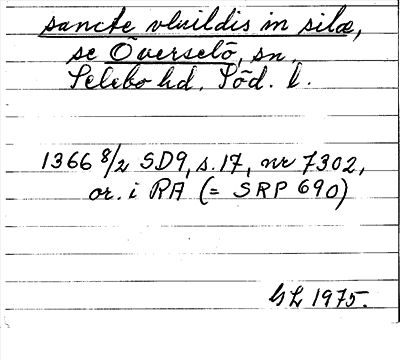 sancte vluildis in silæ,
se Överselö, sn.
Selebo hd. Söd. l.
1366 8/2 SD9, s. 17, nr 7302,
or. i RA (= SRP 690)
GL 1975.